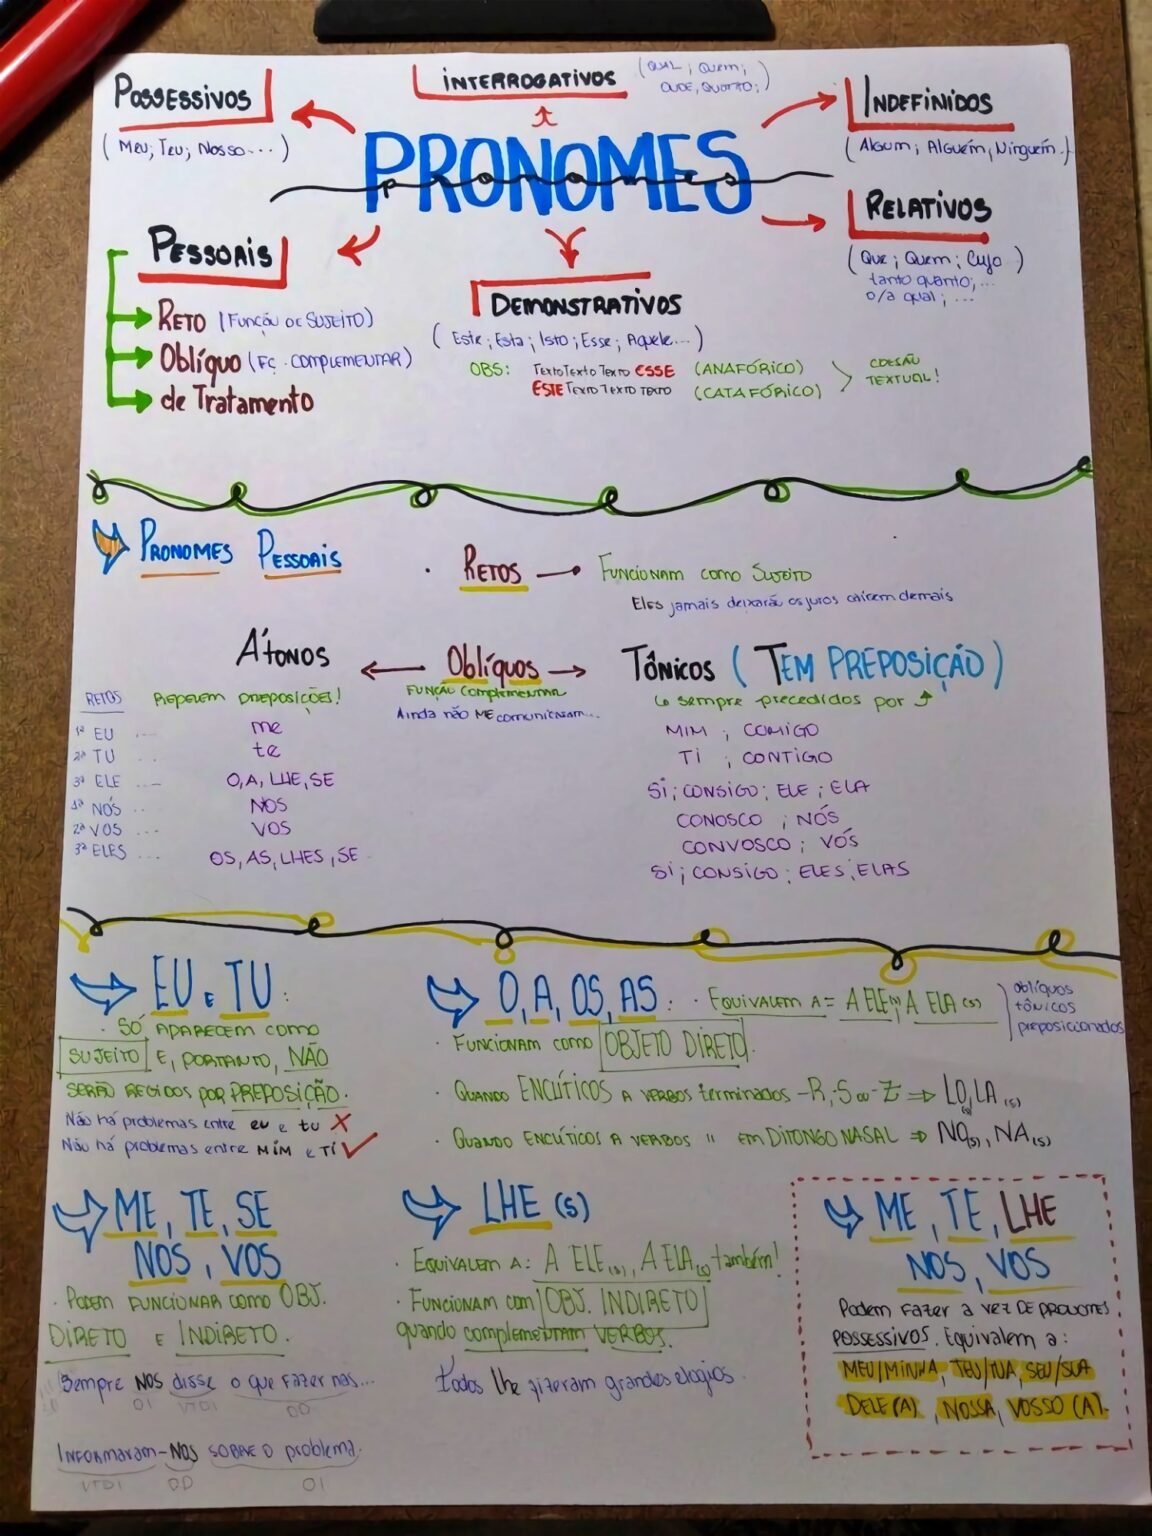 POSSESSIVOS
(MEU; TEU; NOSSO...)
INTERROGATIVOS
(QUAL; QUEM;
INDEFINIDOS
(ALGUM; ALGUÉM, NINGUÉM.)
PRONOMES
RELATIVOS
(QUE; QUEM; CUJO)
tanto quanto;...
o/a qual; ...
PESSOAIS
RETO (FUNÇÃO DE SUJEITO)
OBLÍQUO (FÇ. COMPLEMENTAR)
de Tratamento
DEMONSTRATIVOS
(Este; Esta; Isto; Esse; Aquele...)
OBS: TEXTO TEXTO TEXTO ESSE (ANAFÓRICO)
ESTE TEXTO TEXTO TEXTO (CATAFÓRICO)
COESÃO
TEXTUAL!
PRONOMES PESSOAIS
. RETOS FUNCIONAM COMO SUJEITO
Eles jamais deixarão os juros caírem demais
ÁTONOS
OBLÍQUOS
FUNÇÃO COMPLEMENTAR
Ainda não ME comunicaram...
TÔNICOS (TEM PREPOSIÇÃO)
sempre precedidos por
RETOS REPELEM PREPOSIÇÕES!
1ª EU .... me
2ª TU ... te
3ª ELE .... O, A, LHE, SE
1ª NÓS ... NOS
2ª VOS ... VOS
3ª ELES ... OS, AS, LHES, SE
MIM ; COMIGO
TI ; CONTIGO
SI; CONSIGO; ELE; ELA
CONOSCO ; NÓS
CONVOSCO ; VÓS
SI; CONSIGO; ELES; ELAS
EU E TU:
. SÓ APARECEM COMO
SUJEITO E, PORTANTO, NÃO
SERÃO REGIDOS POR PREPOSIÇÃO.
Não há problemas entre eu e tu X
Não há problemas entre MIM e TI
O, A, OS, AS: . EQUIVALEM A = A ELE(S), A ELA(S)
oblíquos
tônicos
preposicionados
. FUNCIONAM COMO OBJETO DIRETO.
. QUANDO ENCLÍTICOS A VERBOS terminados -R, -S ou -Z ⇒ LO(S), LA(S)
. QUANDO ENCLÍTICOS A VERBOS " EM DITONGO NASAL ⇒ NO(S), NA(S)
ME, TE, SE
NOS, VOS
. PODEM FUNCIONAR COMO OBJ.
DIRETO E INDIRETO.
Sempre NOS disse o que fazer nas...
OI VTDI OD
INFORMARAM-NOS SOBRE O problema.
VTDI OD OI
LHE (S)
. EQUIVALEM A: A ELE(S), A ELA(S) também!
. FUNCIONAM COM OBJ. INDIRETO
quando complementam VERBOS.
todos lhe fizeram grandes elogios.
ME, TE, LHE
NOS, VOS
Podem fazer a vez DE PRONOMES
POSSESSIVOS. Equivalem a:
MEU/MINHA, TEU/TUA, SEU/SUA
DELE(A), NOSSA, VOSSO(A).